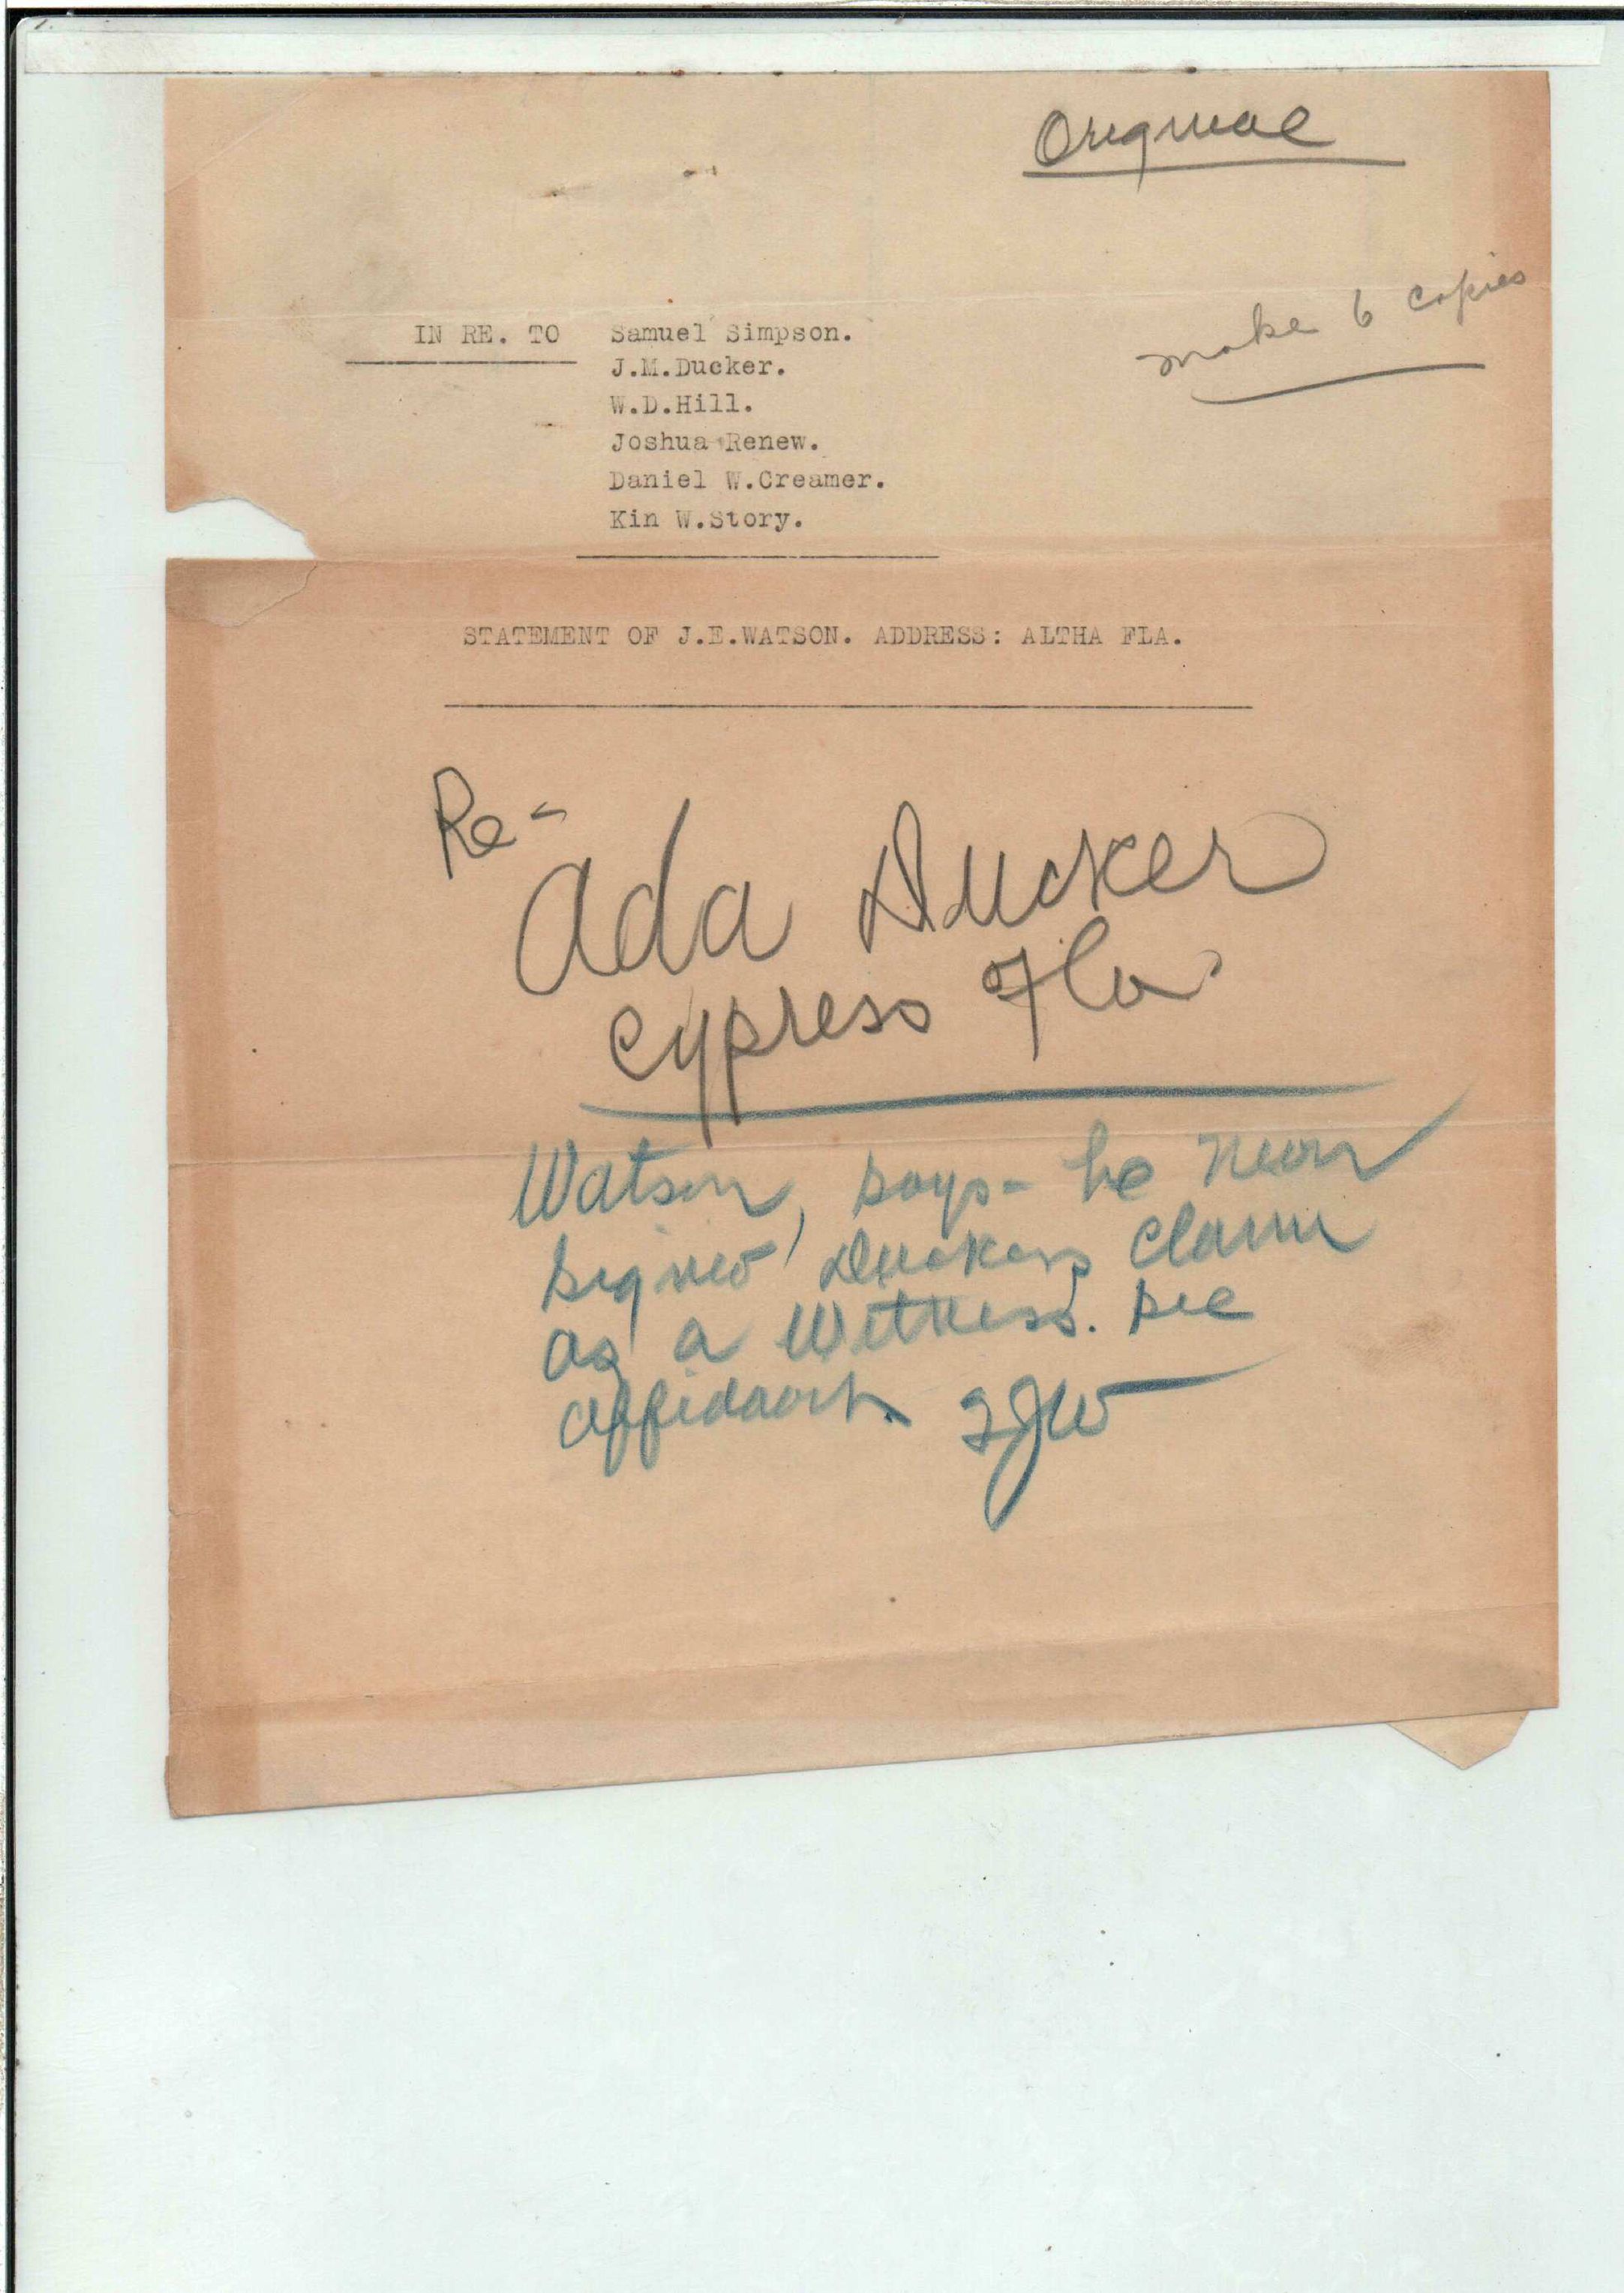 Original
make 6 copies
IN RE. TO Samuel Simpson.
J.M.Ducker.
W.D.Hill.
Joshua Renew.
Daniel W.Creamer.
Kin W.Story.
STATEMENT OF J.E.WATSON. ADDRESS: ALTHA FLA.
Re-
Ada Ducker
Cypress Fla
Watson, says- he never
signed Duckers claim
as a Witness. see
affidavit.